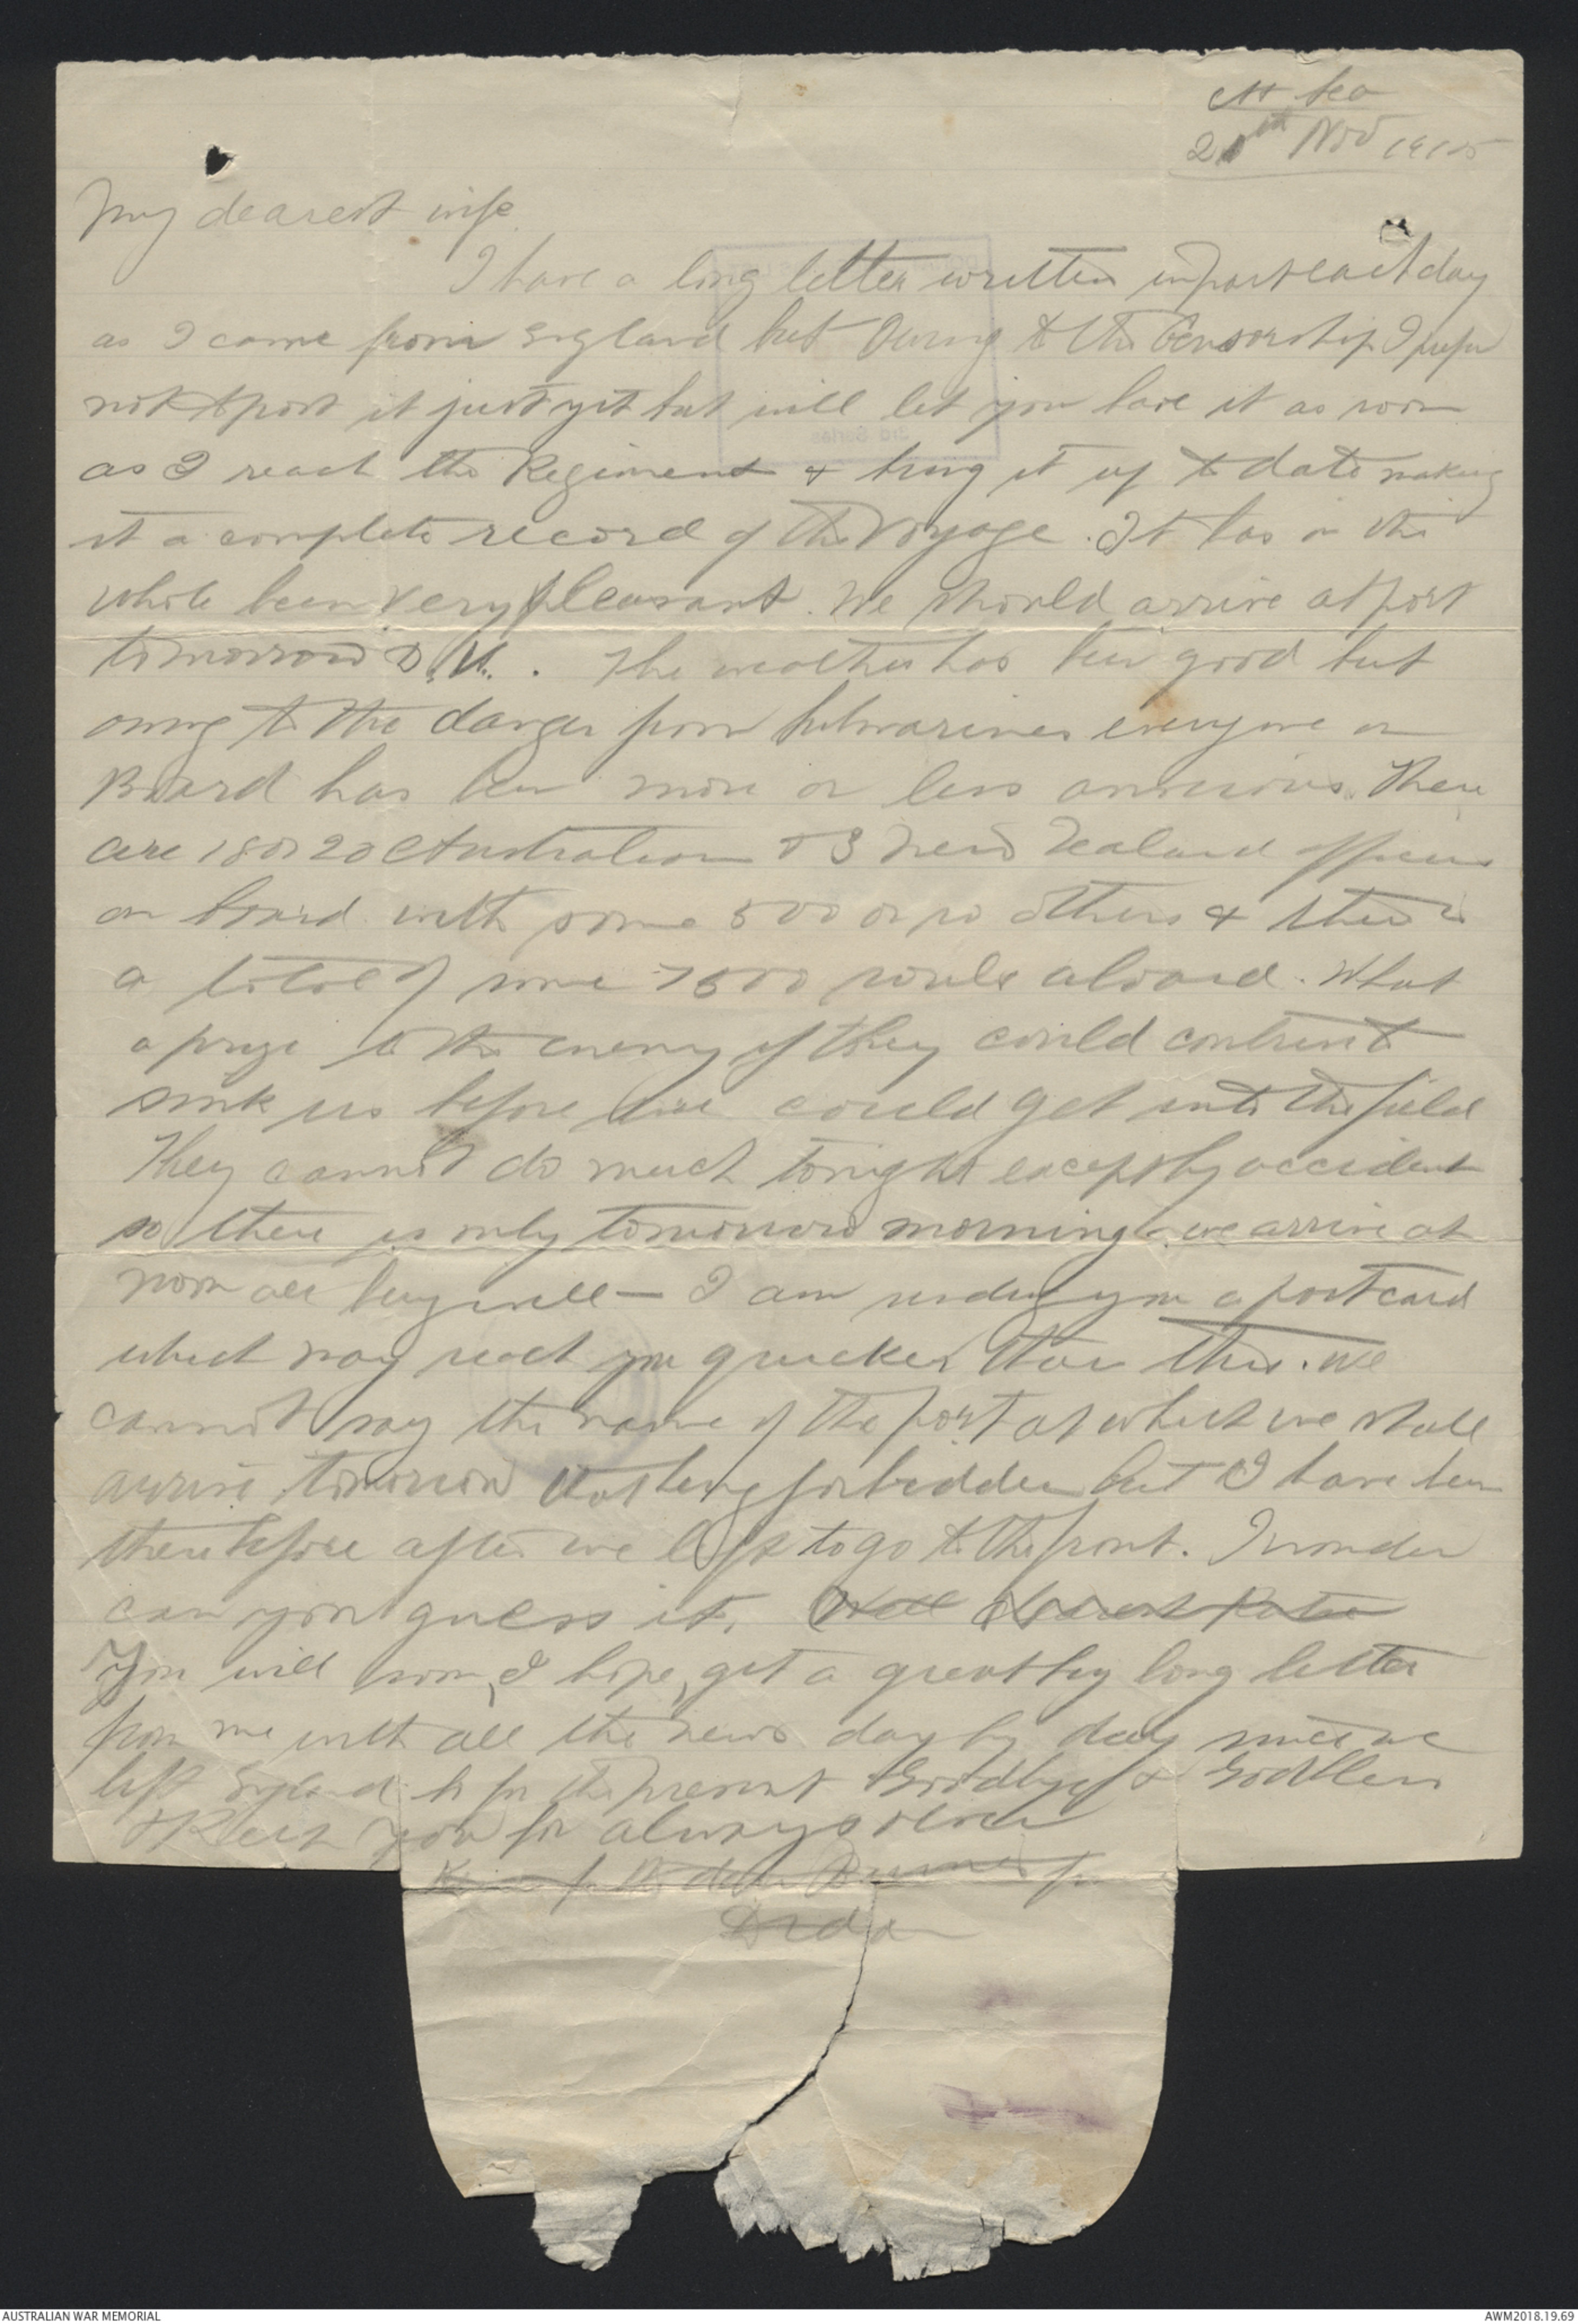 At Sea
Nov 1915
My dearest wife
I have a long letter written in part each day
as I come from England but Owing to the Censorship I prefer
not to post it just yet but will let you have it as soon
as I reach the Regiment & bring it up to date making
it a complete record of the Voyage. It has on the
whole been very pleasant. We should arrive at port
tomorrow D.V. . The weather has been good but
owing to the danger from submarines everyone on
Board has been more or less anxious. There
are 18 or 20 Australian & 3 New Zealand officers
on board with some 500 or so others & there is
a total of some souls aboard. What
a prize to the enemy if they could contrive to
sink us before we could get into the field
They cannot do much tonight except by accident
so there is only tomorrow morning & we arrive at
noon all being well – I am sending you a postcard
which may reach you quicker than this. We
cannot say the name of the port at which we shall
arrive tomorrow that being forbidden but I have been
there before after we left to go to the front. I wonder
can you guess it. Well Dearest
You will soon, I hope, get a great big long letter
from me with all the news day by day since we
left England. So for the present Goodbye & God bless
& Keep you for always
for the dear for
3rd Series
AUSTRALIAN WAR MEMORIAL
AWM2018.19.69